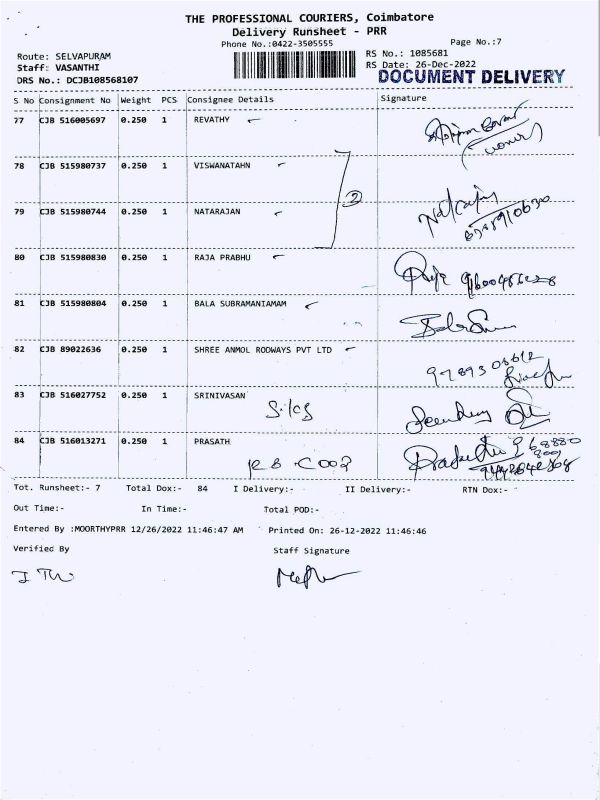 THE PROFESSIONAL COURIERS, Coimbatore
Delivery Runsheet - PRR
Phone No.:0422-3505555
Page No.:7
Route: SELVAPURAM
RS No.: 1085681
Staff: VASANTHI
RS Date: 26-Dec-2022
DRS No.: DCJB108568107
DOCUMENT DELIVERY
S No Consignment No Weight PCS Consignee Details Signature
77 CJB 516005697 0.250 1 REVATHY
78 CJB 515980737 0.250 1 VISWANATAHN
2
79 CJB 515980744 0.250 1 NATARAJAN
80 CJB 515980830 0.250 1 RAJA PRABHU
81 CJB 515980804 0.250 1 BALA SUBRAMANIAMAM
82 CJB 89022636 0.250 1 SHREE ANMOL RODWAYS PVT LTD
83 CJB 516027752 0.250 1 SRINIVASAN
84 CJB 516013271 0.250 1 PRASATH
Tot. Runsheet:- 7 Total Dox:- 84 I Delivery:- II Delivery:- RTN Dox:-
Out Time:- In Time:- Total POD:-
Entered By :MOORTHYPRR 12/26/2022 11:46:47 AM Printed On: 26-12-2022 11:46:46
Verified By Staff Signature